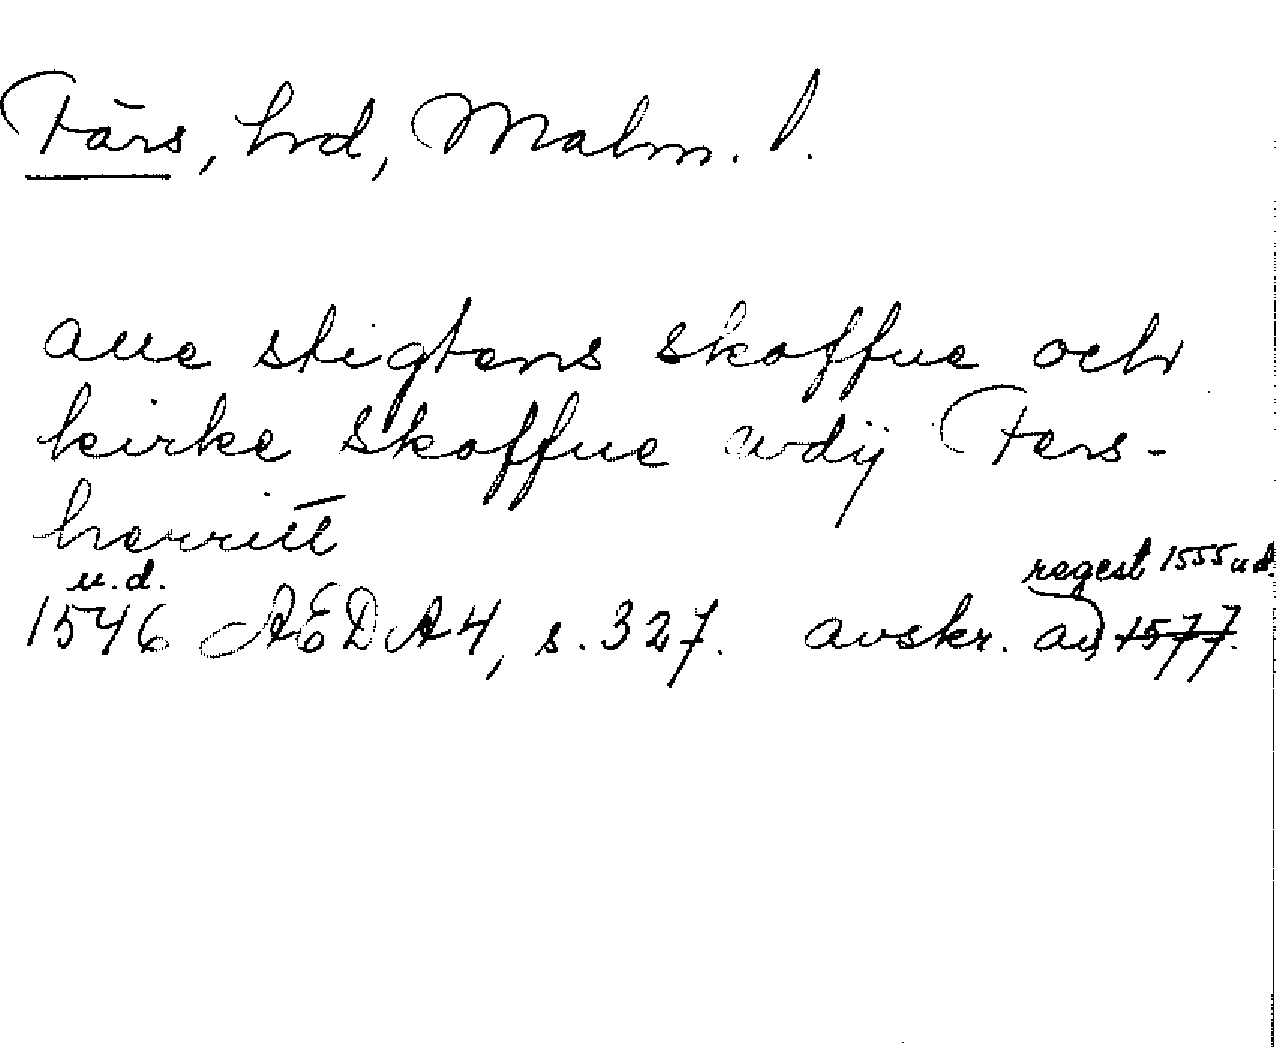 Färs, hrd, Malm. l.
alle stigtens skoffue och
kirke skoffue wdij Fers-
herritt
u.d. regest 1555 u d.
1546 AEDA4, s. 327. avskr. av 1577.